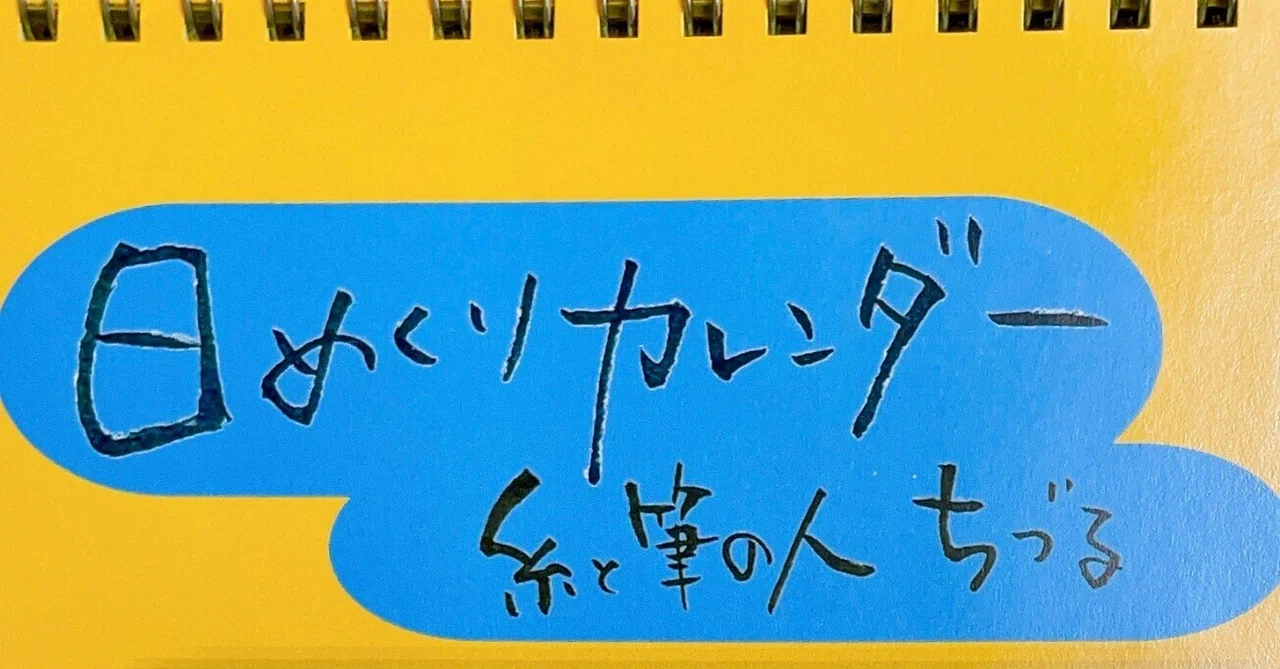 日めくりカレンダー
糸と筆の人 ちづる